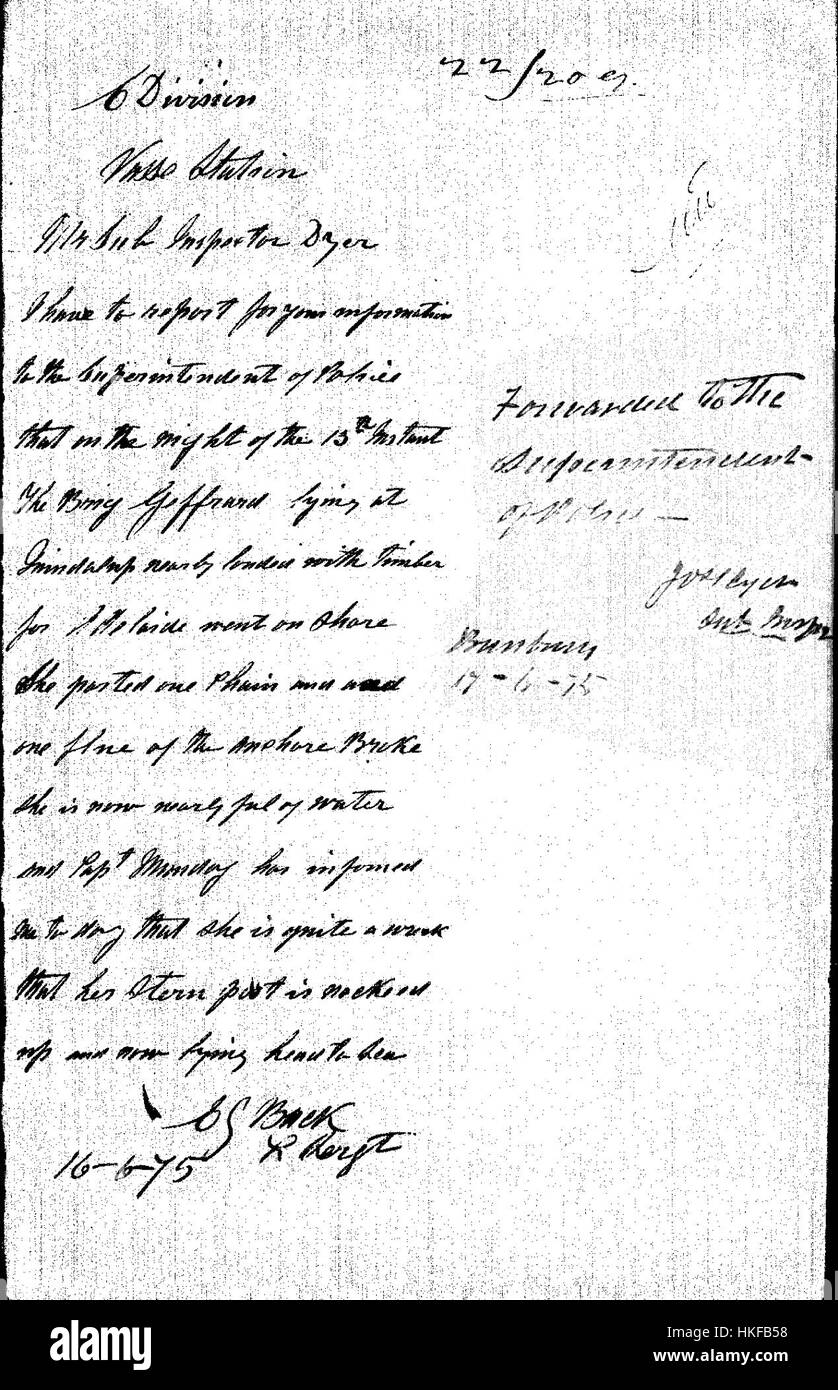 22/209
C Division
Vasse Station
Mr Sub Inspector Dyer
I have to report for your information
to the Superintendent of Police
that on the night of the 13th Instant
The Brig Geffrard lying at
Quindalup nearly loaded with timber
for Adelaide went on Shore
She parted one Chain and and
one flue of the anchore Broke
she is now nearly ful of water
and Capt Munday has infomed
me to day that she is quite a wreck
that her Stern post is nocked
up and now lying head to Sea
Back
Sergt
16-6-75
Forwarded to the
Superintendent
of Police —
Jos Dyer
Sub Inspr
Bunbury
17-6-75
alamy
Image ID: HKFB58
www.alamy.com